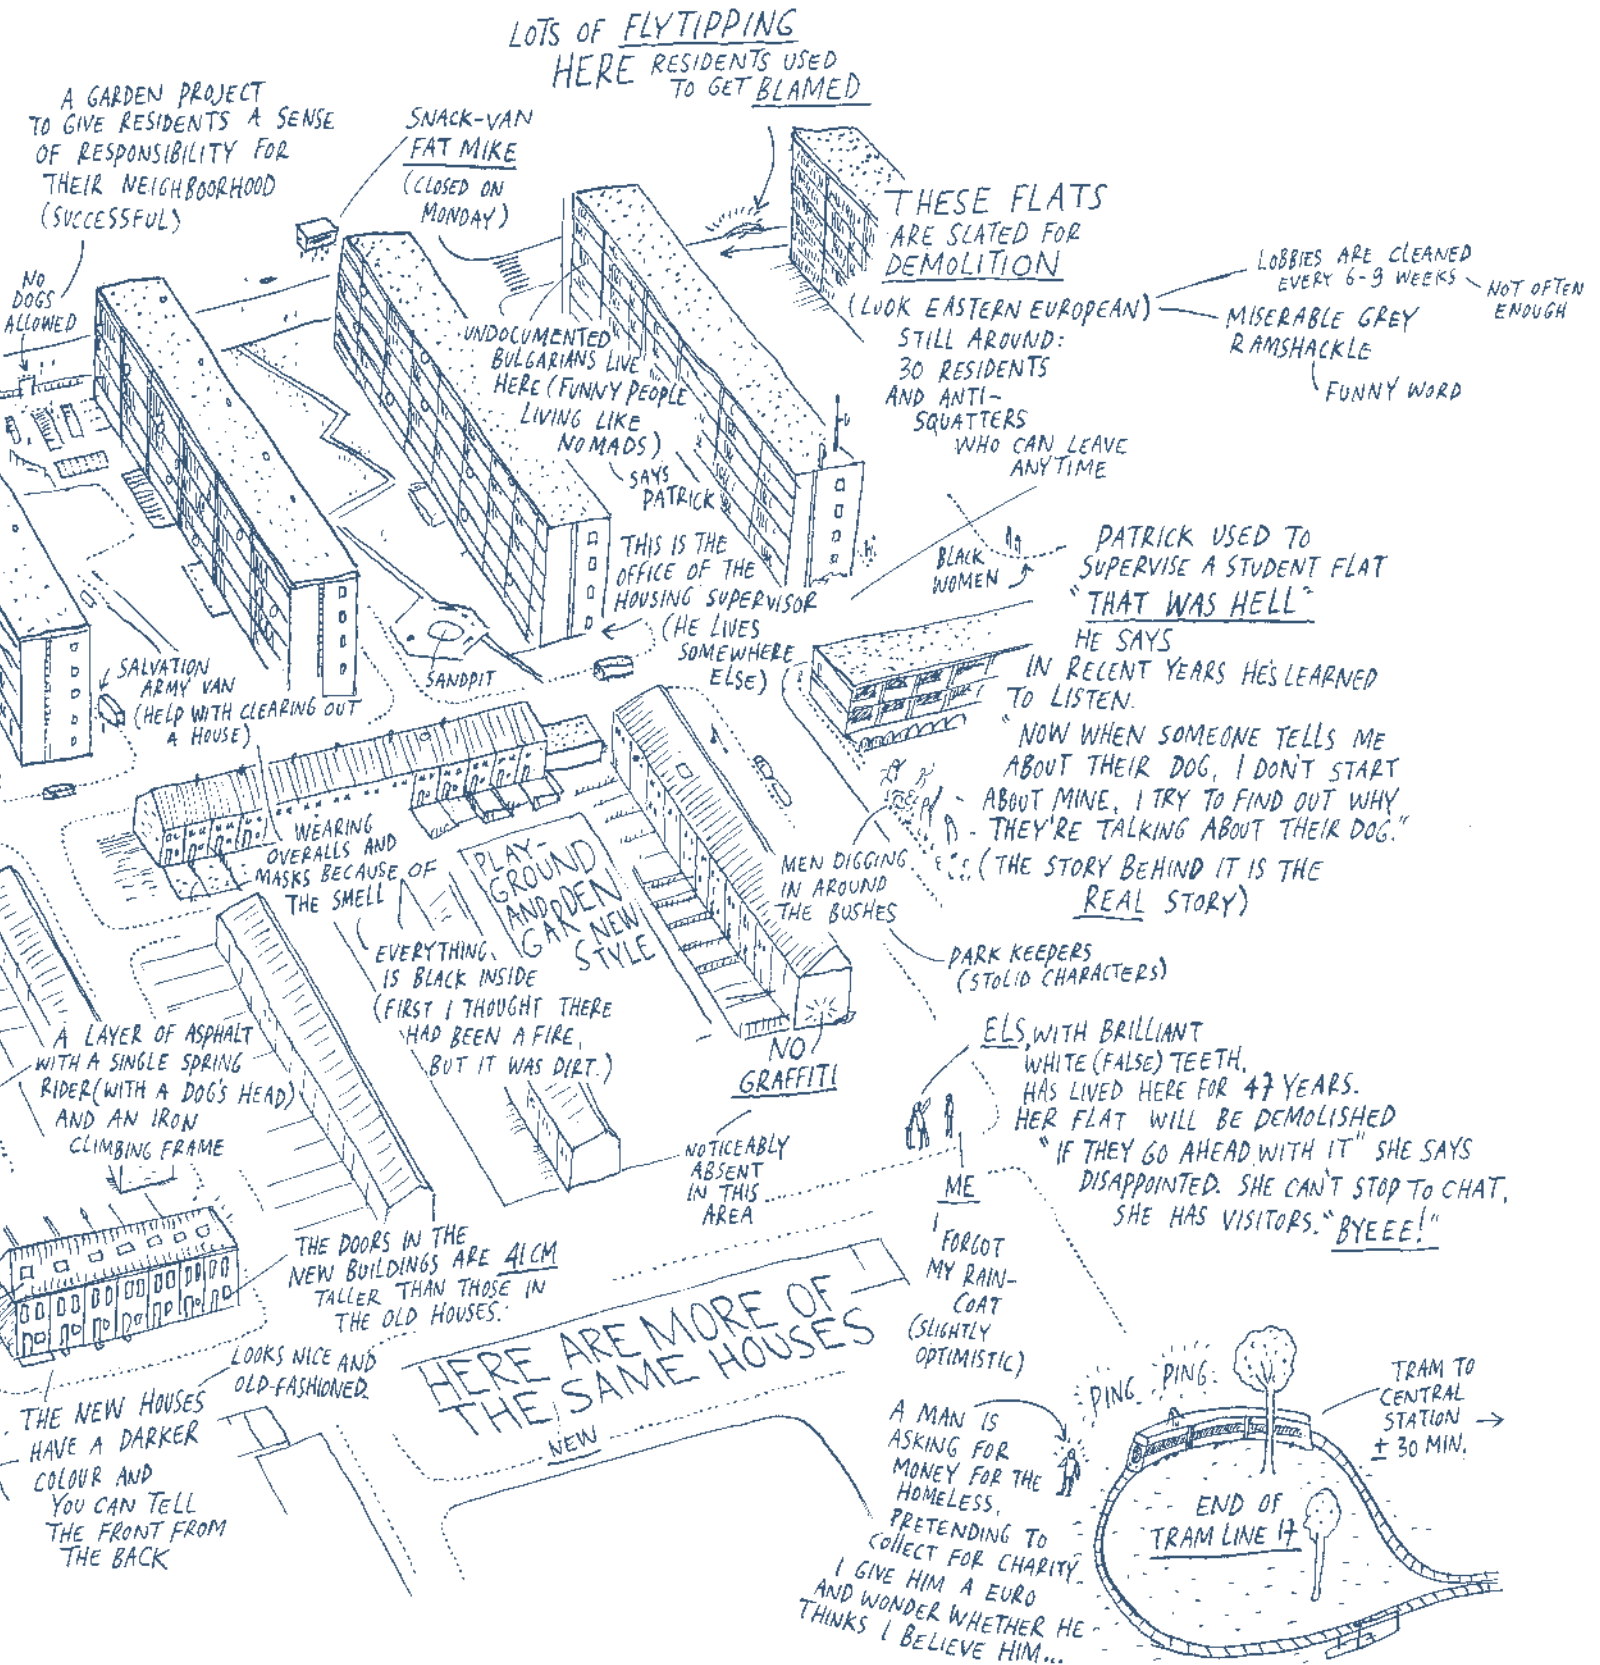 LOTS OF FLYTIPPING
HERE RESIDENTS USED
TO GET BLAMED
A GARDEN PROJECT
TO GIVE RESIDENTS A SENSE
OF RESPONSIBILITY FOR
THEIR NEIGHBOORHOOD
(SUCCESSFUL)
NO
DOGS
ALLOWED
SNACK-VAN
FAT MIKE
(CLOSED ON
MONDAY)
THESE FLATS
ARE SLATED FOR
DEMOLITION
(LOOK EASTERN EUROPEAN)
STILL AROUND:
30 RESIDENTS
AND ANTI-
SQUATTERS
WHO CAN LEAVE
ANYTIME
LOBBIES ARE CLEANED
EVERY 6-9 WEEKS
NOT OFTEN
ENOUGH
MISERABLE GREY
RAMSHACKLE
FUNNY WORD
UNDOCUMENTED
BULGARIANS LIVE
HERE (FUNNY PEOPLE
LIVING LIKE
NOMADS)
SAYS
PATRICK
THIS IS THE
OFFICE OF THE
HOUSING SUPERVISOR
(HE LIVES
SOMEWHERE
ELSE)
BLACK
WOMEN
PATRICK USED TO
SUPERVISE A STUDENT FLAT
"THAT WAS HELL"
HE SAYS
IN RECENT YEARS HE'S LEARNED
TO LISTEN.
"NOW WHEN SOMEONE TELLS ME
ABOUT THEIR DOG, I DON'T START
ABOUT MINE, I TRY TO FIND OUT WHY
THEY'RE TALKING ABOUT THEIR DOG."
(THE STORY BEHIND IT IS THE
REAL STORY)
SALVATION
ARMY VAN
(HELP WITH CLEARING OUT
A HOUSE)
SANDPIT
WEARING
OVERALLS AND
MASKS BECAUSE OF
THE SMELL
PLAY-
GROUND
AND
GARDEN
NEW
STYLE
MEN DIGGING
IN AROUND
THE BUSHES
PARK KEEPERS
(STOLID CHARACTERS)
EVERYTHING
IS BLACK INSIDE
(FIRST I THOUGHT THERE
HAD BEEN A FIRE,
BUT IT WAS DIRT.)
A LAYER OF ASPHALT
WITH A SINGLE SPRING
RIDER (WITH A DOG'S HEAD)
AND AN IRON
CLIMBING FRAME
NO
GRAFFITI
NOTICEABLY
ABSENT
IN THIS
AREA
ELS, WITH BRILLIANT
WHITE (FALSE) TEETH,
HAS LIVED HERE FOR 47 YEARS.
HER FLAT WILL BE DEMOLISHED
"IF THEY GO AHEAD WITH IT" SHE SAYS
DISAPPOINTED. SHE CAN'T STOP TO CHAT,
SHE HAS VISITORS. "BYEEE!"
ME
I
FORGOT
MY RAIN-
COAT
(SLIGHTLY
OPTIMISTIC)
THE DOORS IN THE
NEW BUILDINGS ARE 41 CM
TALLER THAN THOSE IN
THE OLD HOUSES.
HERE ARE MORE OF
THE SAME HOUSES
NEW
LOOKS NICE AND
OLD-FASHIONED.
THE NEW HOUSES
HAVE A DARKER
COLOUR AND
YOU CAN TELL
THE FRONT FROM
THE BACK
PING PING
A MAN IS
ASKING FOR
MONEY FOR THE
HOMELESS,
PRETENDING TO
COLLECT FOR CHARITY.
I GIVE HIM A EURO
AND WONDER WHETHER HE
THINKS I BELIEVE HIM...
TRAM TO
CENTRAL
STATION
± 30 MIN.
END OF
TRAM LINE 17